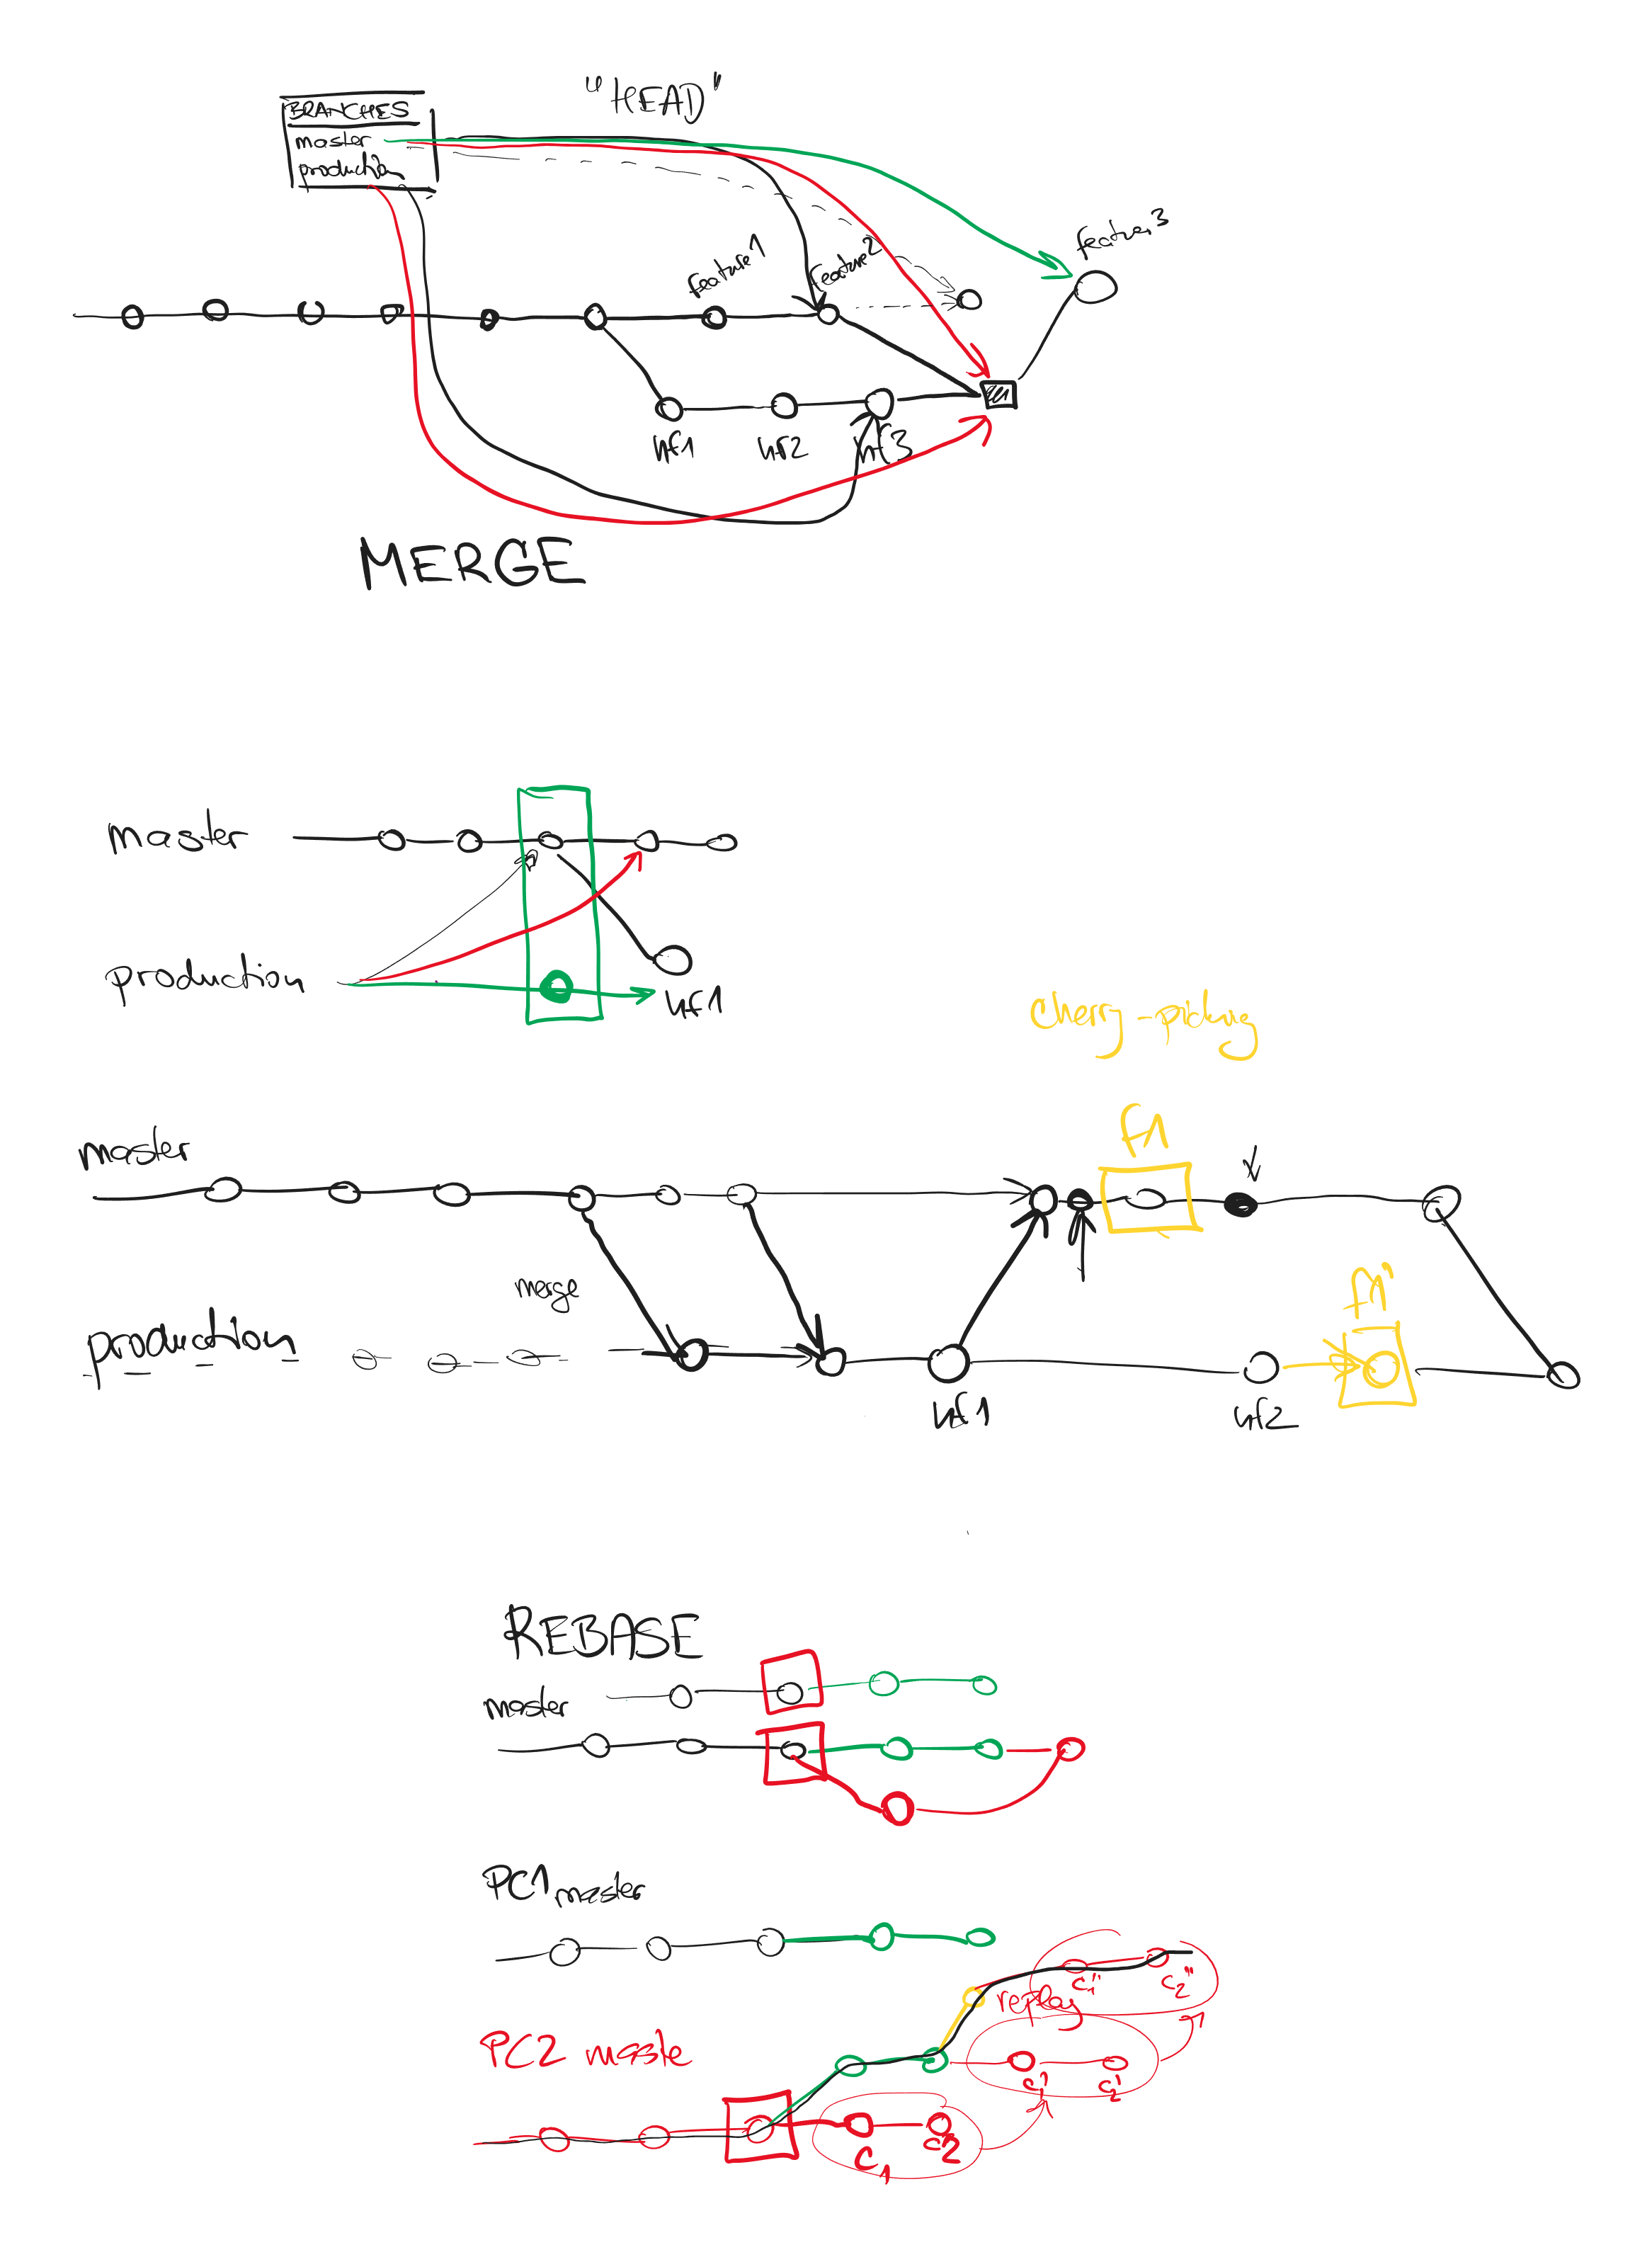 "HEAD"
BRANCHES
master
production
feature 1
feature 2
feature 3
hf1
hf2
hf3
MERGE
master
production
hf1
cherry-picking
f1
master
merge
f1'
production
hf1
hf2
REBASE
master
PC1 master
c1''
c2''
replay
PC2 maste
c1'
c2'
c1
c2